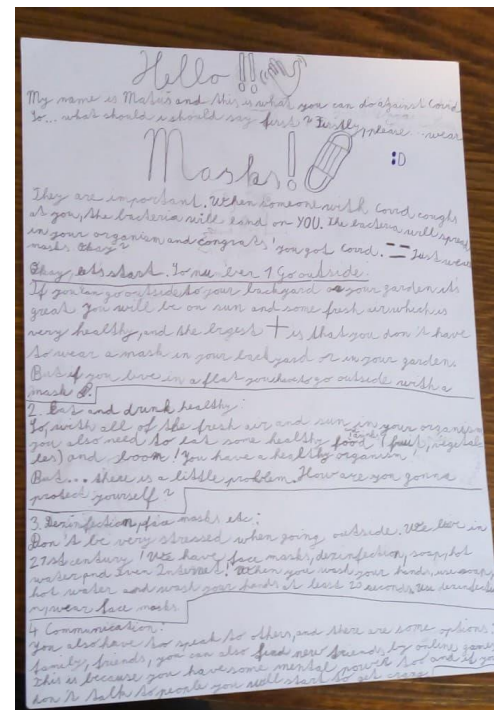 Hello!!
My name is Matus and this is what you can do against Covid
So... what should i should say first? Firstly please... wear
Masks! :D
They are important. When someone with Covid coughs
at you, the bacteria will land on YOU. The bacteria will spread
in your organism and congrats! you got Covid. Just wear
masks Okay?
Okay lets start. So number 1 Go outside:
If you can go outside to your backyard or your garden it's
great you will be on sun and some fresh air which is
very healthy, and the bigest + is that you don't have
to wear a mask in your backyard or in your garden.
But if you live in a flat you have to go outside with a
mask
2. Eat and drink healthy:
So, with all of the fresh air and sun in your organism
you also need to eat some healthy food (fruit, vegetab
les) and boom! You have a healthy organism!
But... there is a little problem. How are you gonna
protect yourself?
3. Dezinfection, face masks etc:
Don't be very stressed when going outside. We live in
21st century! We have face masks, dezinfection, soap, hot
water and even Internet! When you wash your hands, use soap,
hot water and wash your hands at least 20 seconds, use dezinfectio
n, wear face masks
4 Communication:
You also have to speak to others, and there are some options:
family, friends, you can also find new friends by online games
This is because you have some mental power too and if you
don't talk to people you will start to get crazy!